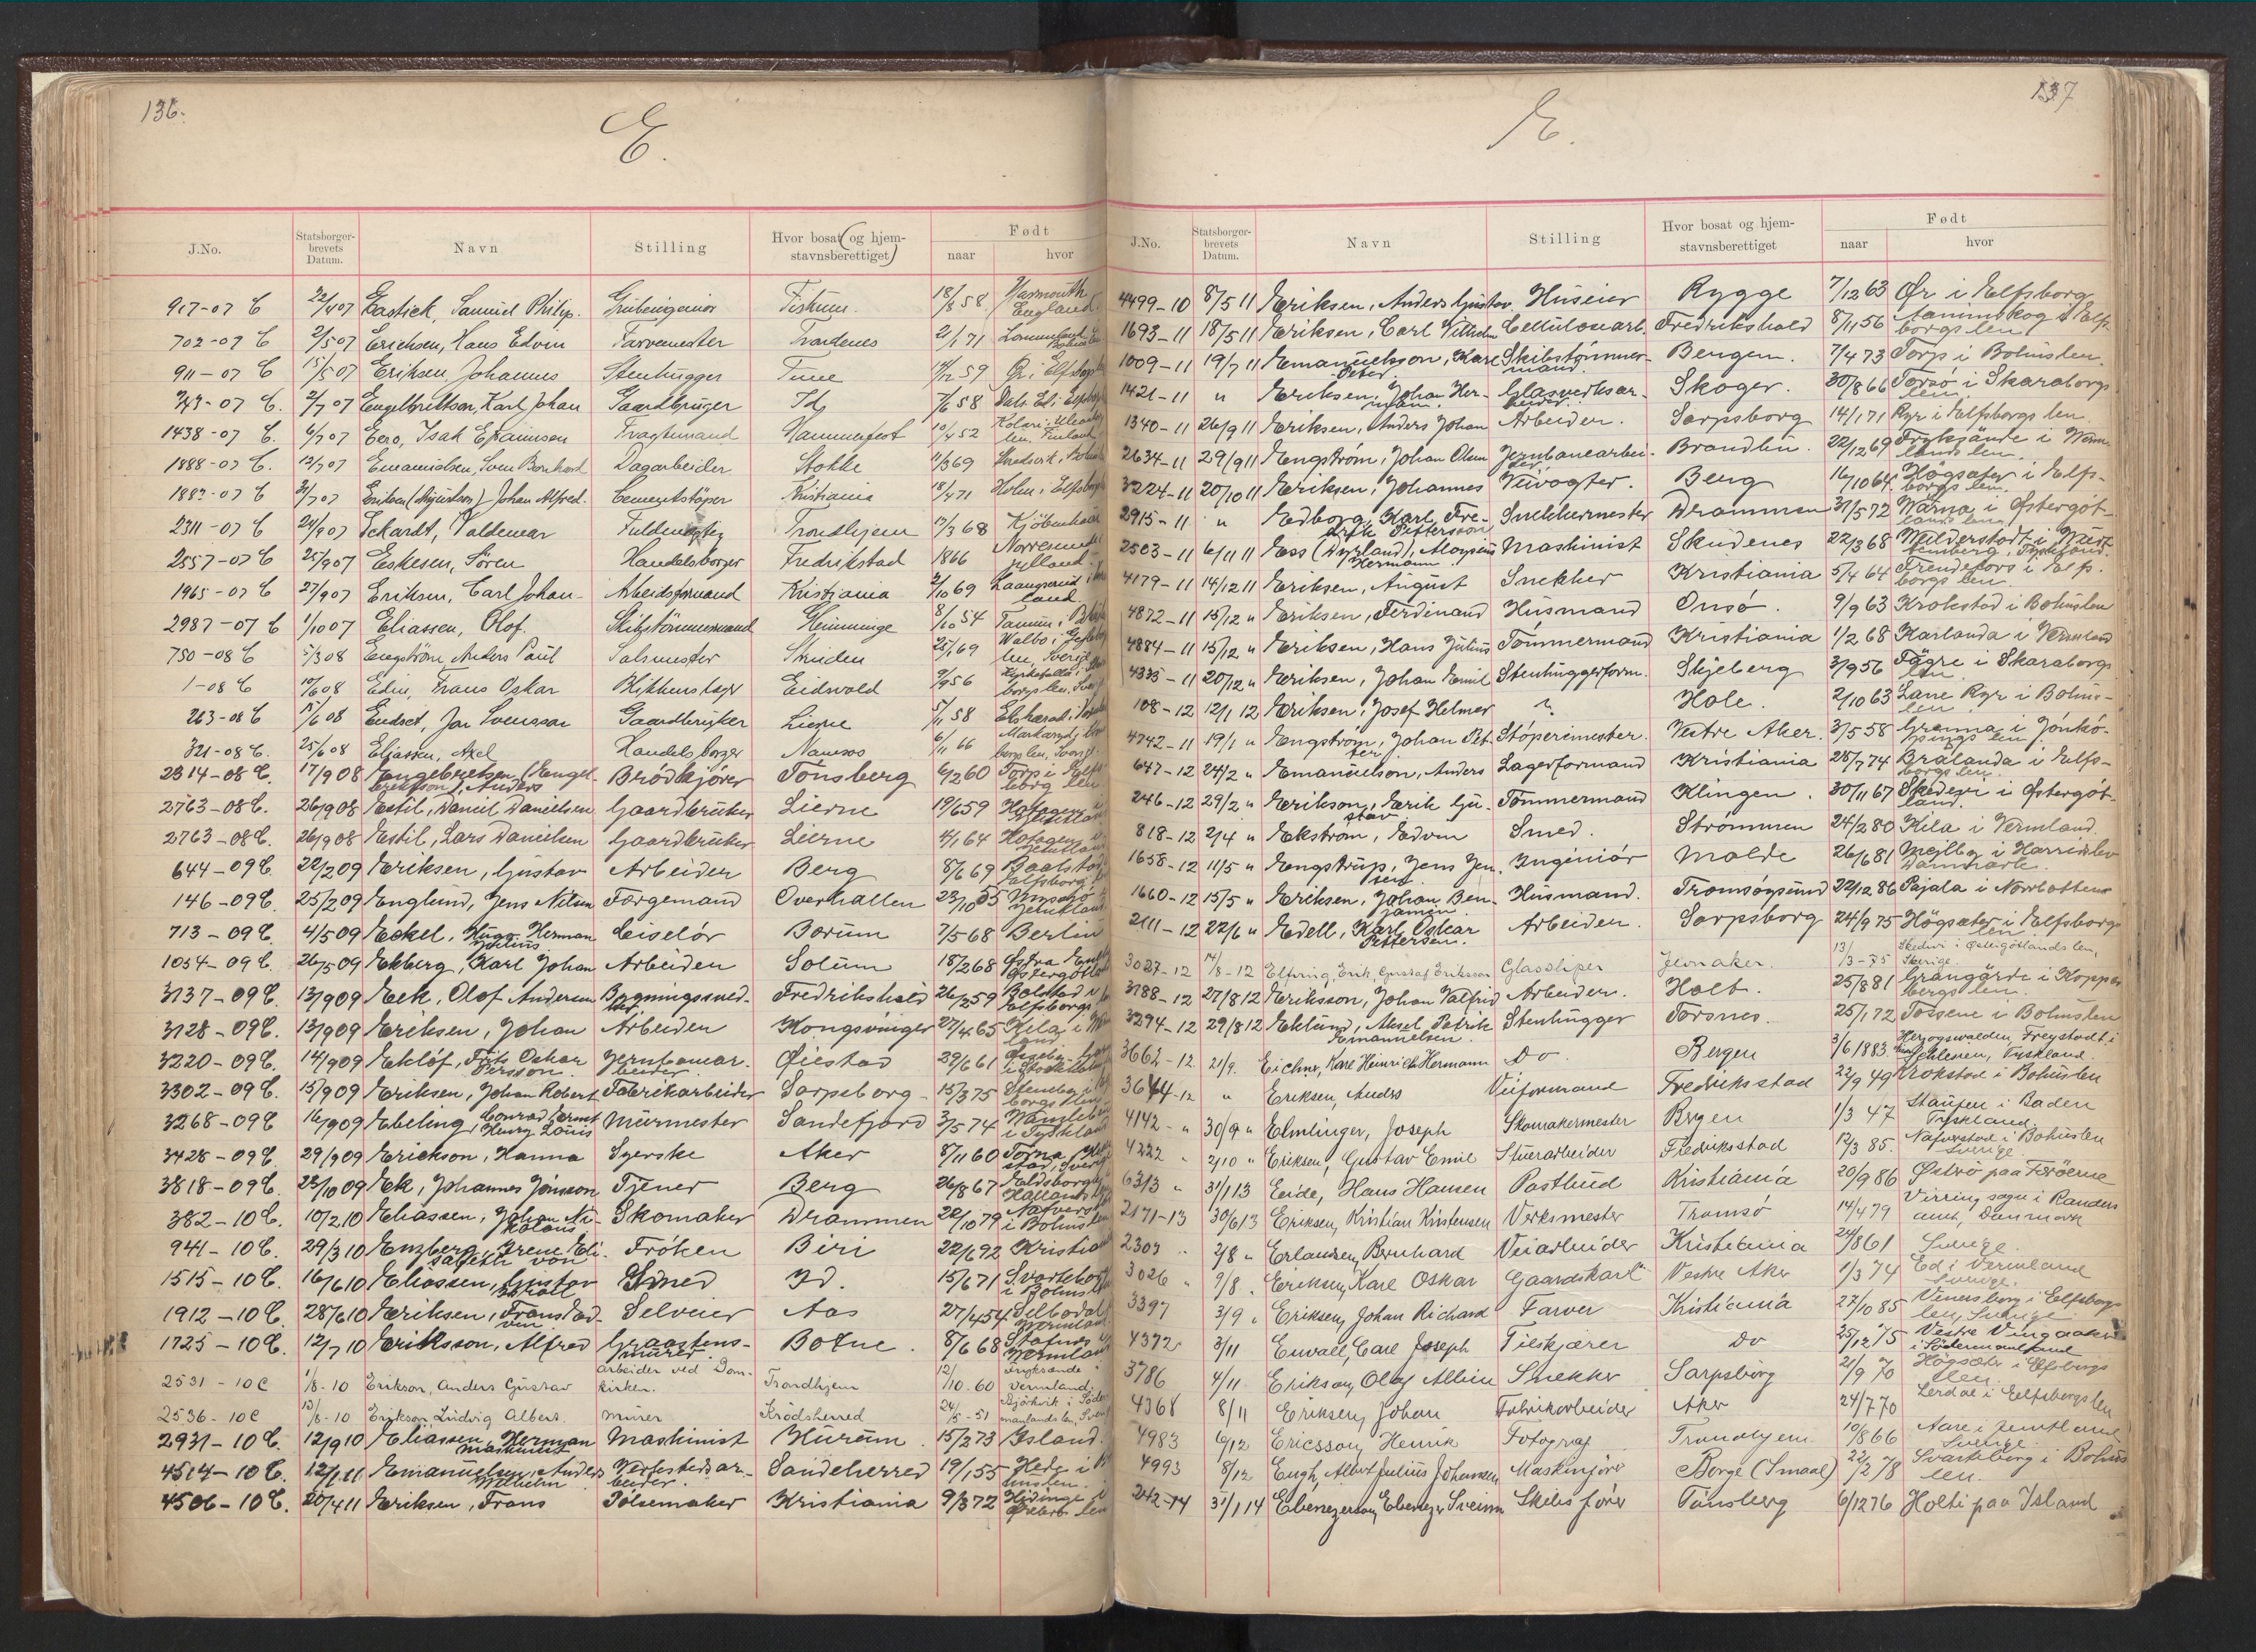 136.
E.
J.No.
Statsborger-
brevets
Datum.
Navn
Stilling
Hvor bosat (og hjem-
stavnsberettiget)
Født
naar
hvor
917-07 C 22/4 07 Eastick, Samuel Philip. Grubeingeniør Fiskum. 18/8 58 Yarmouth England
702-07 C 2/5 07 Erichsen, Hans Edvin Farvemester Trondenes 21/1 71
911-07 C 15/5 07 Eriksen, Johannes Stenhugger Tune 14/12 59 Ør i Elfsborgs
743-07 C. 2/7 07 Engelbrektson, Karl Johan Gaardbruger Id 7/6 58 Dals Ed i Elfsborgs
1438-07 C. 6/7 07 Eero, Isak Efraimsen Fragtemand Hammerfest 10/4 52 Kolari i Uleaborg len, Finland
1888-07 C. 12/7 07 Emanuelsen, Sven Bernhard Dagarbeider Stokke 11/3 69
1887-07 C 31/7 07 Eriksen (Aguston) Johan Alfred. Cementstøper Kristiania 18/4 71 Holm i Elfsborgs
2311-07 C 24/9 07 Eckardt, Valdemar Fuldmægtig Trondhjem 17/3 68 Kjøbenhavn
2557-07 C 25/9 07 Eskesen, Sören Handelsborger Fredrikstad 1866 Nørresundby Jylland.
1965-07 C 27/9 07 Eriksen, Carl Johan Arbeidsformand Kristiania 2/10 69
2987-07 C 1/10 07 Eliassen, Olof. Skibstömmermand Hemminge 8/10 54 Tanum i
750-08 C 5/3 08 Engström, Anders Paul Salsmester Skinden 25/1 69 Valbo i Gefleborg len, Sverige
1-08 C 10/6 08 Edin, Frans Oskar Blikkenslager Eidsvold 2/9 56
263-08 C 15/6 08 Endset, Jon Svensson Gaardbruker Lierne 5/11 58
321-08 C. 25/6 08 Eliassen, Axel Handelsborger Namsos 6/11 66
2314-08 C. 17/9 08 Engebretsen (Engel-
brektson), Anders Brödkjörer Tönsberg 6/2 60 Torp i Elfs-
borg len
2763-08 C. 26/9 08 Estil, Daniel Danielsen Gaardbruker Lierne 19/6 59 Hotagen i Jemtland
2763-08 C. 26/9 08 Estil, Lars Danielsen Gaardbruker Lierne 4/1 64 Hotagen i Jemtland
644-09 C. 22/2 09 Eriksen, Gustav Arbeider Berg 8/6 69 Baalstad Elfsborg
146-09 C. 25/2 09 Englund, Jens Nilsen Færgemand Overhallen 23/10 55 Jemtland
713-09 C. 4/5 09 Eckel, Hugo Herman
Julius Ciselör Bærum 7/5 68 Berlin
1054-09 C. 26/5 09 Ekberg, Karl Johan Arbeider Solum 18/2 68 Østra Østergötland
3137-09 C. 13/9 09 Eek, Olof Andersen Bygningssned-
ker Fredrikshald 26/2 59 Bolstad i Elfsborgs
3128-09 C. 13/9 09 Eriksen, Johan Arbeider Kongsvinger 27/4 65 Kila i Værm
land
3220-09 C. 14/9 09 Eklöf, Frits Oskar
Persson. Jernbanear-
beider. Øiestad 29/6 61
3302-09 C. 15/9 09 Eriksen, Johan Robert Fabrikarbeider Sarpsborg 15/3 75
3268-09 C 16/9 09 Ebeling, Conrad Ernst
Henry Louis Murmester Sandefjord 3/5 74 Wansleben
i Tyskland
3428-09 C. 29/9 09 Erickson, Hanna Syerske Aker 8/11 60
3818-09 C. 23/10 09 Ek, Johannes Jönsson Tjener Berg 26/8 67 Hallands
382-10 C. 10/2 10 Eliassen, Johan Ni-
kolaus Skomaker Drammen 22/10 79 Naverstad
i Bohuslen
941-10 C. 29/3 10 Enzberg, Irene Eli-
sabeth von Fröken Biri 22/6 92 Kristiania
1515-10 C. 16/6 10 Eliassen, Gustav Smed Id. 15/6 71 Svarteborg
i Bohuslen
1912-10 C. 28/6 10 Eriksen, Frans Ed-
vin Selveier Aas 27/4 54 Selbodal
Vermland
1725-10 C. 12/7 10 Eriksson, Alfred Graastens-
murer Botne. 8/6 68 Stafnäs i
Vermland
2531-10 C 1/8-10 Erikson, Anders Gustav arbeider ved Dom-
kirken. Trondhjem 12/10.60 Frykerude i
Vermland
2536-10 C 13/8-10 Erikson, Ludvig Albert. Murer Krödsherred 24/5-51 Björkvik i Söder-
manlands len, Sverige
2931-10 C. 12/9 10 Eliassen, Herman Maskinist Hurum. 15/2 73 Island.
4514-10 C. 12/1 11 Emanuelsen, Anders
Wilhelm Verkstedsar-
beider. Sandeherred 19/1 55 Hede i
4506-10 C. 20/4 11 Eriksen, Frans Pölsemaker Kristiania 9/3 72
137
E.
J.No.
Statsborger-
brevets
Datum.
Navn
Stilling
Hvor bosat og hjem-
stavnsberettiget
Født
naar
hvor
4499-10 8/5 11 Eriksen, Anders Gustav Huseier Rygge 7/12 63 Ør i Elfsborg
1693-11 18/5 11 Eriksen, Carl Vilhelm Cellulosearb. Fredrikshald 8/11 56 Aanimskog i Elfs-
borgs len
1009-11 19/7 11 Emanuelsson, Karl
Peter. Skibstømmer-
mand. Bergen. 7/4 73 Torp i Bohuslen
1421-11 " Eriksen, Johan Her-
man. Glasverksar-
beider. Skoger. 30/8 66 Torsö i Skaraborgs
len
1340-11 26/9 11 Eriksen, Anders Johan Arbeider. Sarpsborg 14/1 71 Ryr i Elfsborgs len
2634-11 29/9 11 Engström, Johan Olsen Jernbanearbei-
der Brandbu. 22/12 69 Frykjände i Værm-
lands len.
3224-11 20/10 11 Eriksen, Johannes Veivogter. Berg 16/10 64 Högsæter i Elfs-
borgs len.
2915-11 " Edborg, Karl Fre-
drik Pettersson Snekkermester Drammen 31/5 72 Wärna i Østergöt-
lands len
2503-11 6/11 11 Ess (Dyrland), Aloysius
Hermann. Maskinist Skudenes 22/3 68 Milderstadt i Würt-
temberg, Tyskland.
4179-11 14/12 11 Eriksen, August Snekker Kristiania 5/4 64 Frendefors i Elfs-
borgs len
4872-11 15/12 " Eriksen, Ferdinand Husmand Onsö. 9/9 63 Krokstad i Bohuslen
4884-11 15/12 " Eriksen, Hans Julius Tömmermand Kristiania 1/2 68 Karlanda i Vermland
4335-11 20/12 " Eriksen, Johan Emil Stenhuggerform. Skjeberg 3/9 56 Fägre i Skaraborgs
len
108-12 12/1 12 Eriksen, Josef Helmer ? Hole. 2/10 63 Lane Ryr i Bohus-
len
4742-11 19/1 " Engström, Johan Pet-
ter Støperimester. Vestre Aker. 3/5 58 Grenna i Jönkö-
pings len
647-12 24/2 " Emanuelson, Anders Lagerformand Kristiania 28/7 74 Brälanda i Elfs-
borgs len.
246-12 29/2 " Erikson, Erik Gu-
stav Tømmermand Klingen. 30/11 67 Skedevi i Østergöt-
land.
818-12 2/4 " Ekström, Edvin Smed. Strömmen 24/2 80 Kila i Vermland.
1658-12 11/5 " Engstrup, Jens Jen-
sen Ingeniör Molde 26/6 81 Mejlby i
Danmark.
1660-12 15/5 " Eriksen, Johan Ben-
jamin Husmand. Tromsøysund 22/12 86 Pajala i Norrbotten
2111-12 22/6 " Edell, Karl Oskar
Pettersen. Arbeider. Sarpsborg 24/9 75 Högsæter i Elfsborgs
len
3027-12 14/8-12 Elfving, Erik Gustaf Eriksson Glassliper Jevnaker 13/3-75 Skedevi i Østergötlands len,
Sverige.
3188-12 27/8 12 Eriksson, Johan Valfrid Arbeider. Holt. 25/8 81 Grangärde i Koppar
bergs len.
3294-12 29/8 12 Eklund, Aksel Patrik
Emanuelsen. Stenhugger Torsnes. 25/1 72 Tossene i Bohuslen
3662-12 21/9. Eichner, Karl Heinrich Hermann Do. Bergen 3/6 1883. Herzogswalden, Freystadt i
Schlesien, Tyskland.
3644-12 " Eriksen, Anders Veiformand Fredriksstad 22/9 49 Krokstad i Bohuslen
4142-" 30/9 " Elmlinger, Joseph Skomakermester Bergen 1/3 47 Staufen i Baden
Tyskland.
4222 " 2/10 " Eriksen, Gustav Emil Stuerarbeider Fredriksstad 12/3 85. Naverstad i Bohuslen
Sverige.
6313 " 31/1 13 Eeide, Hans Hansen Postbud Kristiania 20/9 86 Øströ paa Færöerne
2171-13 30/6 13 Eriksen, Kristian Kristensen Verksmester Tromsö 14/4 79 Virring sogn i Randers
amt, Danmark
2303 " 2/8 " Erlandsen, Bernhard Veiarbeider Kristiania 24/8 61 Sverige.
3026 " 9/8. Eriksen, Karl Oskar Gaardskarl Vestre Aker 1/3 74 Ed i Værmland
Sverige.
3397 3/9 " Eriksen, Johan Richard Farver Kristiania 27/10 85 Venersborg i Elfsborgs
len, Sverige
4372 3/11 Enwall, Carl Joseph Filskjærer Do 25/12 75 Vestre Vingaaker
i Södermanland
3786 4/11 Erikson, Olof Albin Snekker Sarpsborg 21/9 70 Högsæter i Elfsborgs
len.
4368 8/11 Eriksen, Johan Fabrikarbeider Aker 24/7 70 Lerdal i Elfsborgs len
4983 6/12 Ericsson, Henrik Fotograf Trondhjem 10/8 66 Aare i Jemtland
Sverige.
4993 8/12 Engh, Albert Julius Johansen Maskinfører Borge (Smaal) 22/2 78 Svarteborg i Bohus
len.
242-14 31/1 14 Ebenezerson, Ebenezer Sveinn Skibsfører Tønsberg 6/12 76 Holti paa Island